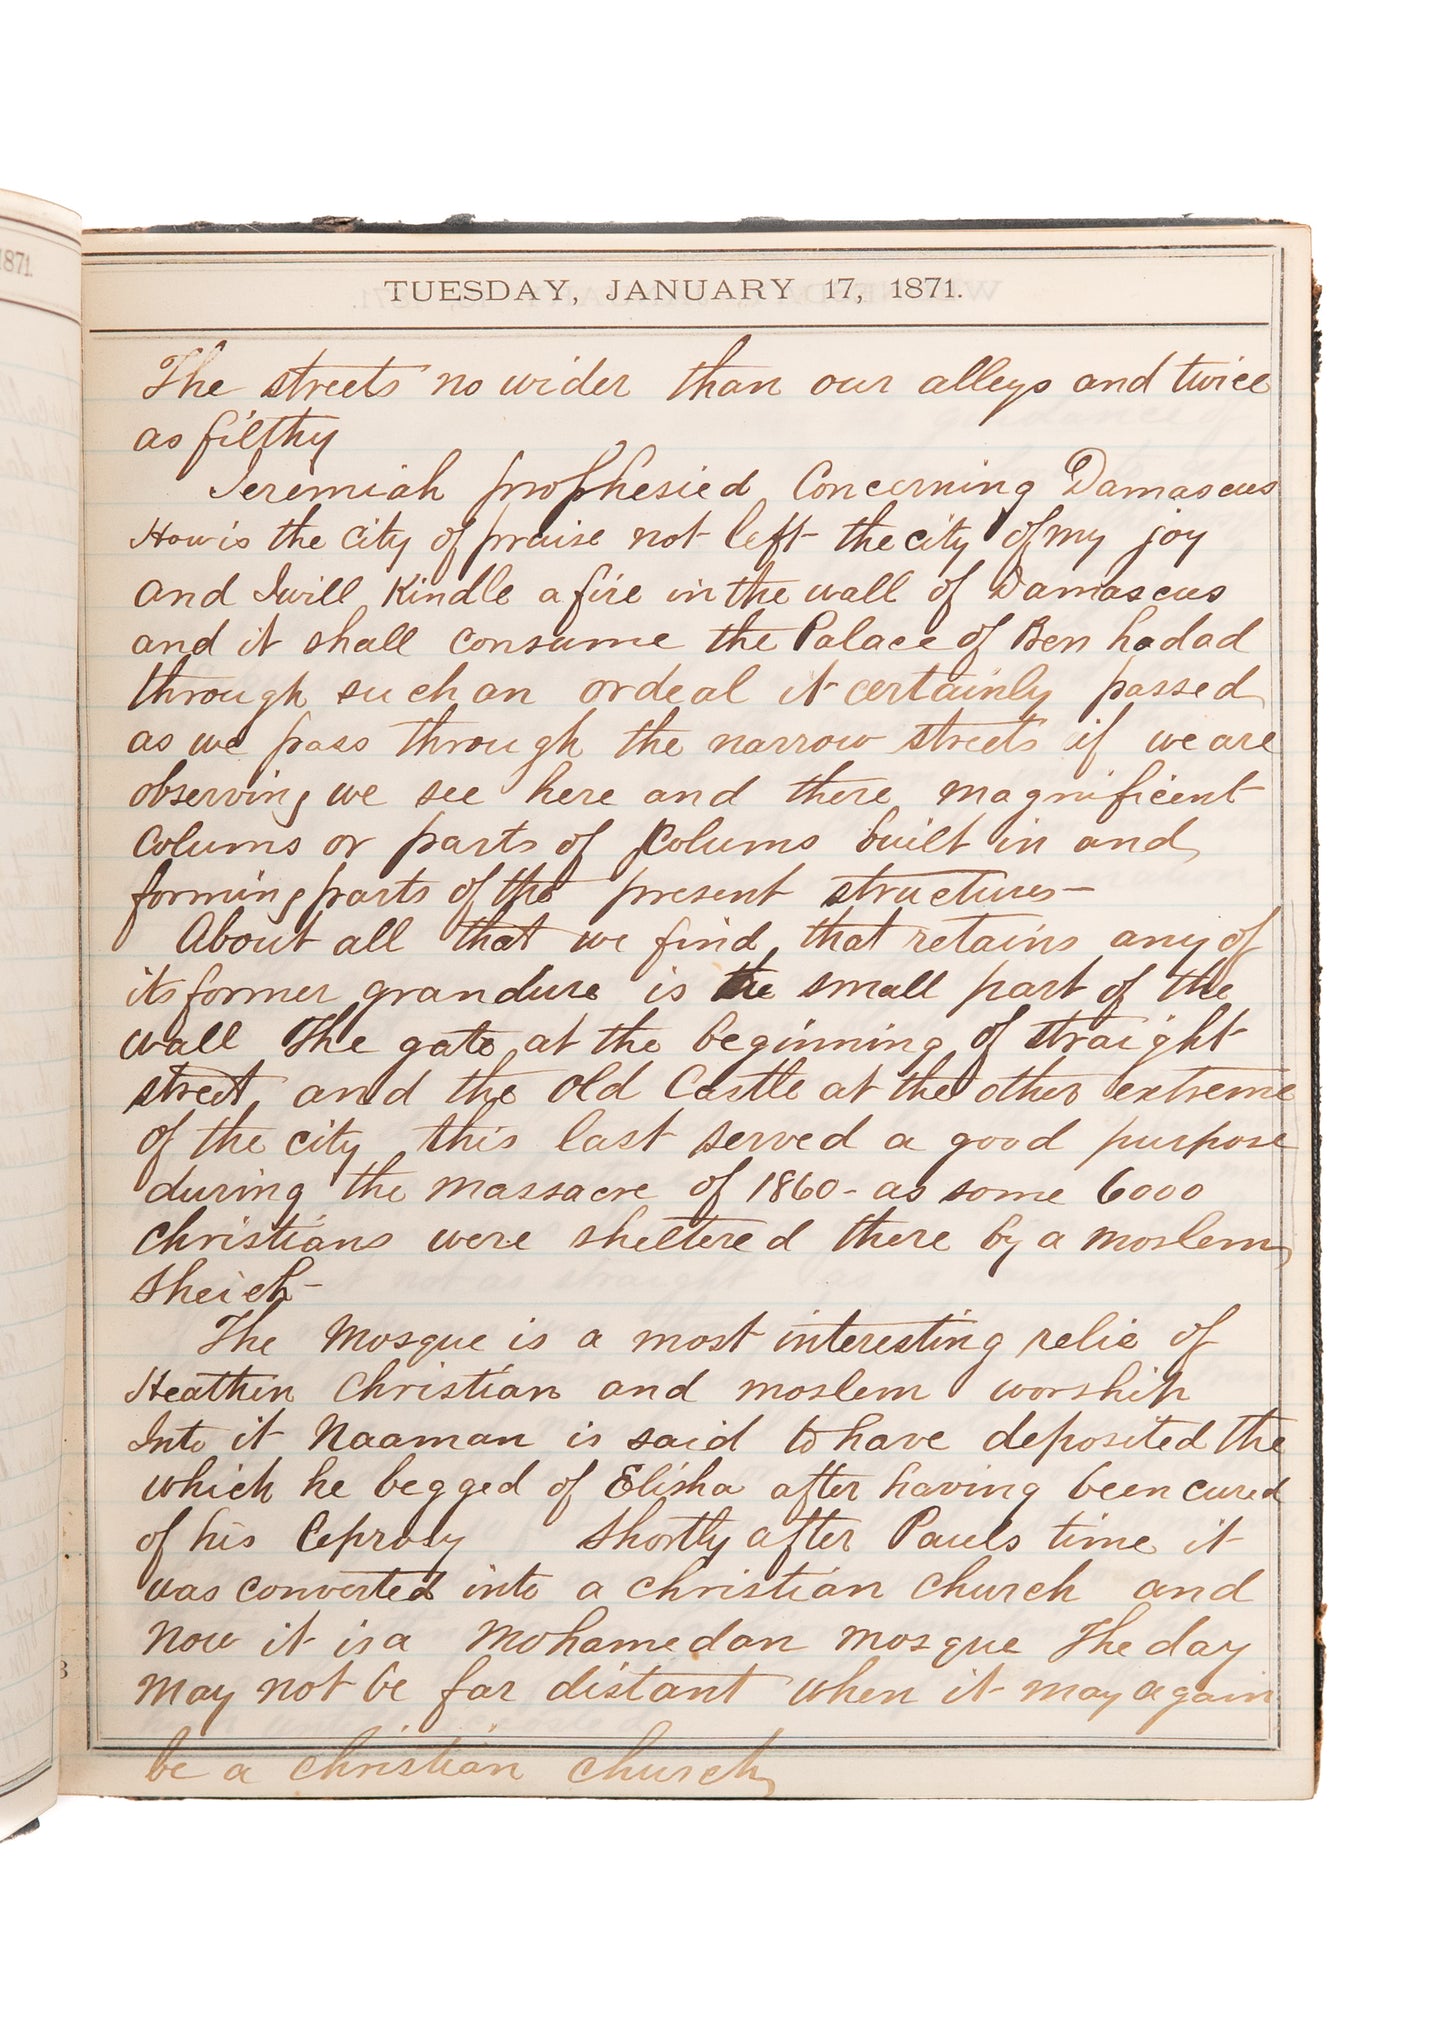 1871.
TUESDAY, JANUARY 17, 1871.
The streets no wider than our alleys and twice
as filthy
Jeremiah prophesied Concerning Damascus
How is the city of praise not left the city of my joy
and I will Kindle a fire in the wall of Damascus
and it shall consume the Palace of Ben hadad
through such an ordeal it certainly passed
as we pass through the narrow streets if we are
observing we see here and there magnificent
Colums or parts of Colums built in and
forming parts of the present structures—
About all that we find that retains any of
its former grandure is the small part of the
wall The gate at the beginning of straight
street and the old Castle at the other extreme
of the city this last served a good purpose
during the massacre of 1860- as some 6000
Christians were sheltered there by a moslem
Sheich-
The Mosque is a most interesting relic of
Heathen Christian and moslem worship
Into it Naaman is said to have deposited the
which he begged of Elisha after having been cured
of his Leprosy Shortly after Pauls time it
was converted into a christian church and
Now it is a Mohamedan mosque The day
may not be far distant when it may again
be a christian church